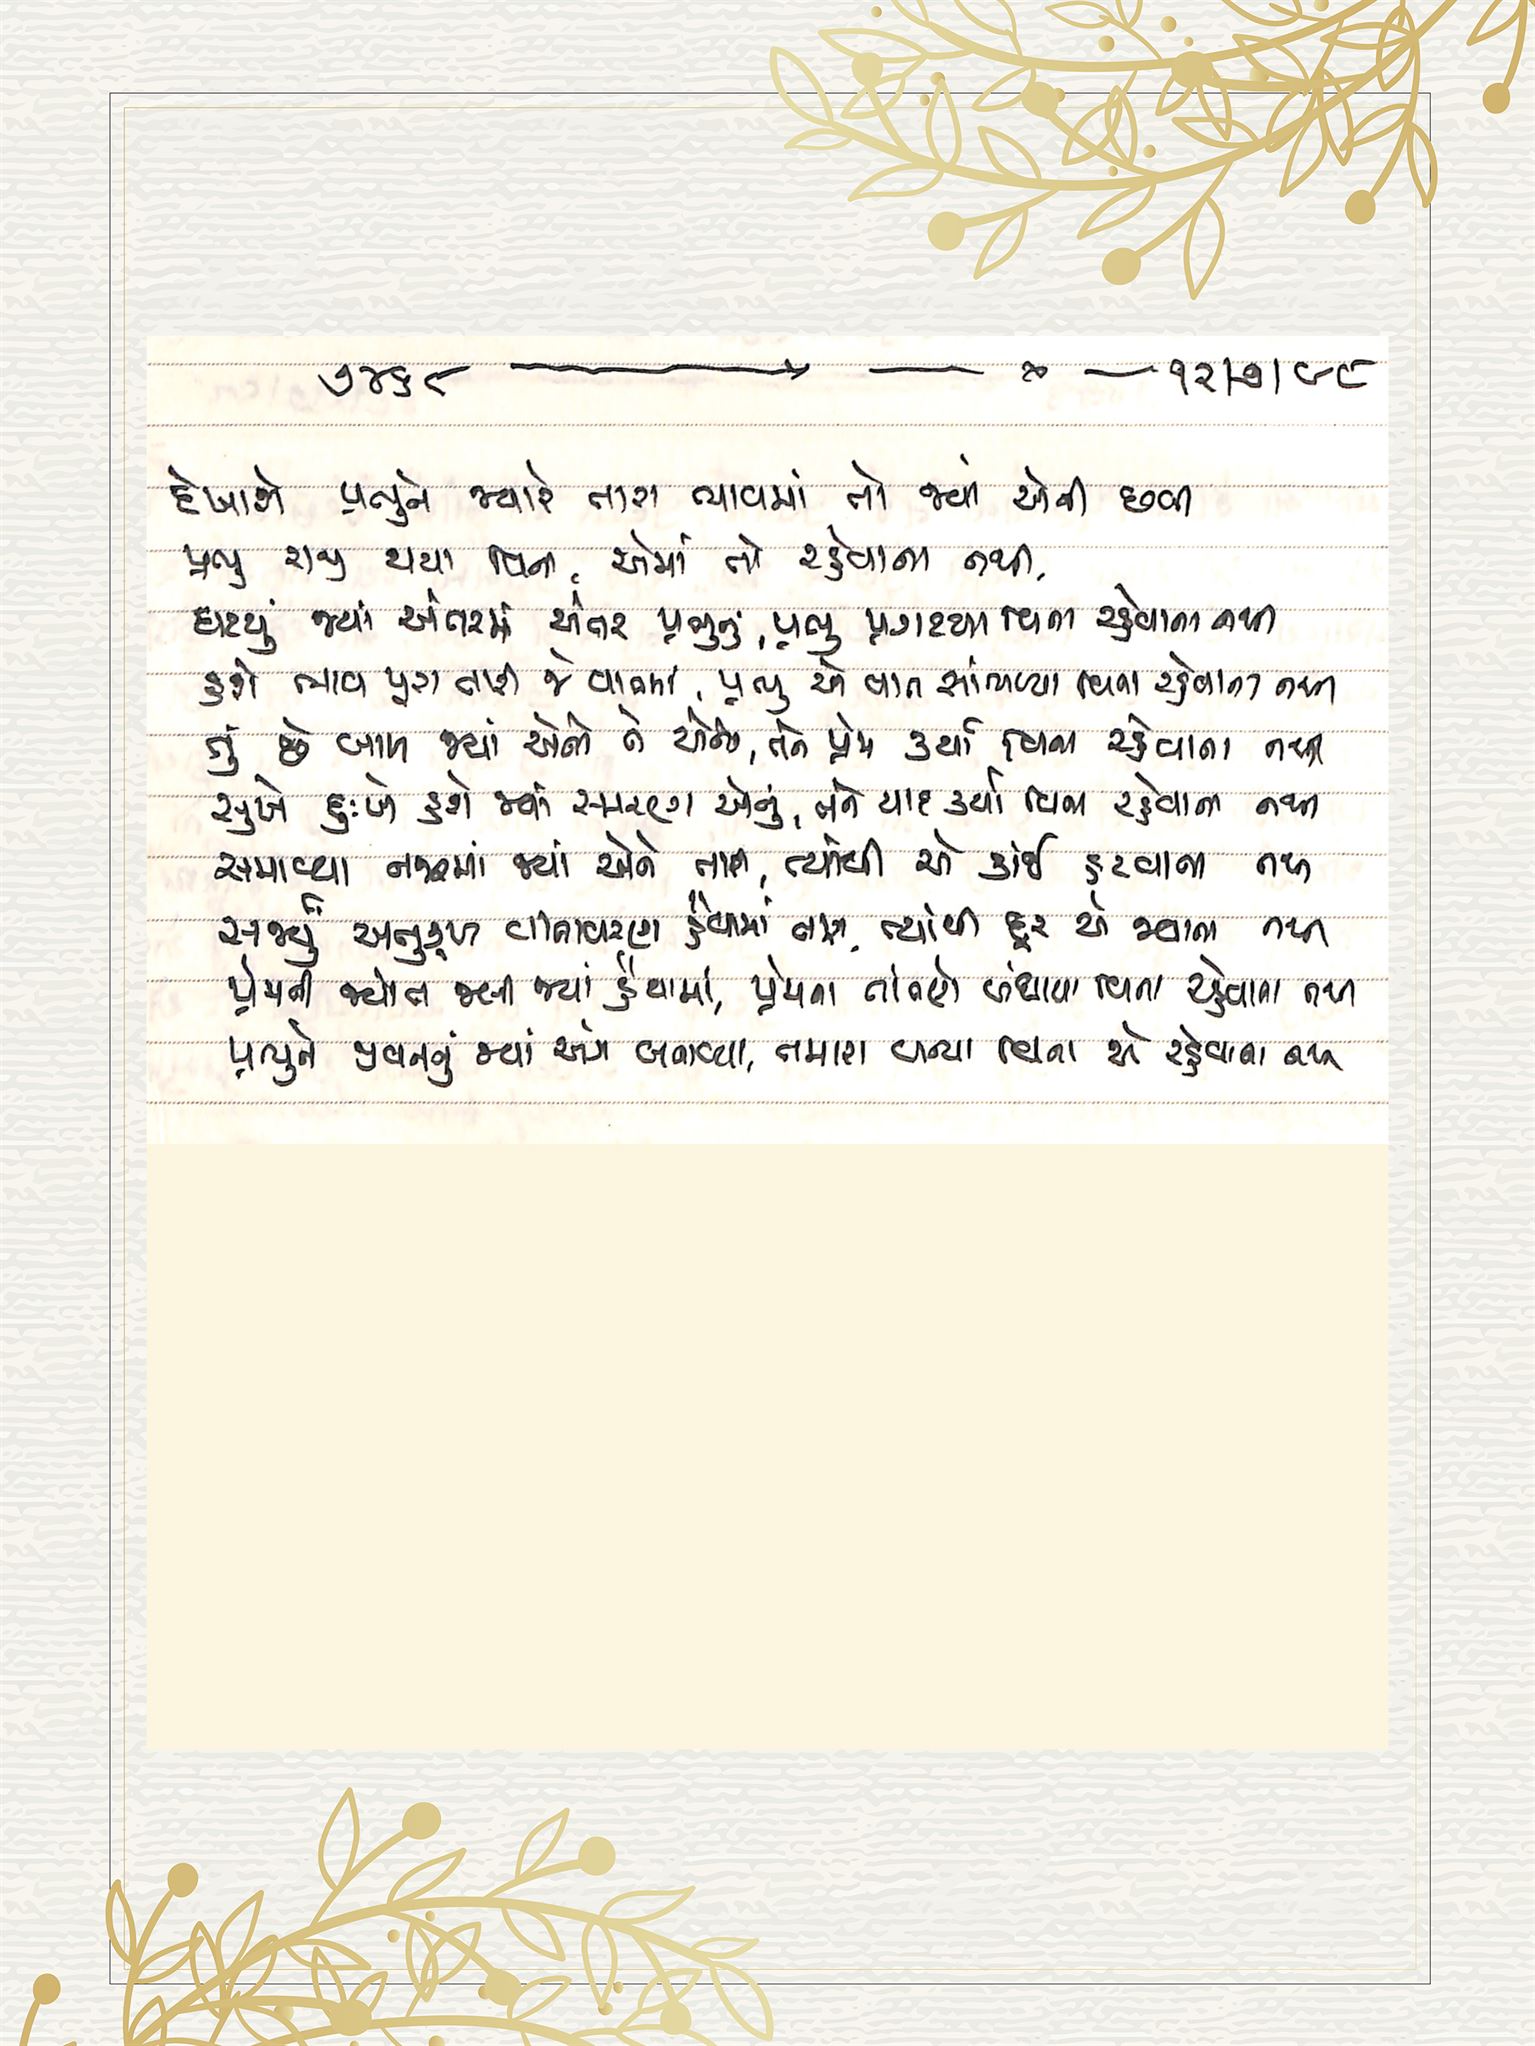 ૭૪૬૯ ૧૨/૭/૯૯
દેખાશે પ્રભુને જ્યારે તારા ભાવમાં તો જ્યાં એની છબી
પ્રભુ રાજી થયા વિના, એમાં તો રહેવાના નથી.
ધારયું જ્યાં અંતરમાં અંતર પ્રભુનું, પ્રભુ પ્રગટયા વિના રહેવાના નથી
હશે ભાવ પૂરા તારી જે વાતમાં, પ્રભુ એ વાત સાંભળ્યા વિના રહેવાના નથી
તું છે બાળ જ્યાં એનો ને એનો, તને પ્રેમ કર્યા વિના રહેવાના નથી
સુખે દુઃખે હશે જ્યાં સ્મરણ એનું, તને યાદ કર્યા વિના રહેવાના નથી
સમાવ્યા નજરમાં જ્યાં એને તારી, ત્યાંથી એ કાંઈ હટવાના નથી
સર્જ્યું અનુકૂળ વાતાવરણ હૈયામાં, ત્યાંથી દૂર એ જાવાના નથી
પ્રેમની જ્યોત જલી જ્યાં હૈયામાં, પ્રેમના તાંતણે બંધાયા વિના રહેવાના નથી
પ્રભુને જીવનનું જ્યાં અંગ બનાવ્યા, તમારા બન્યા વિના એ રહેવાના નથી